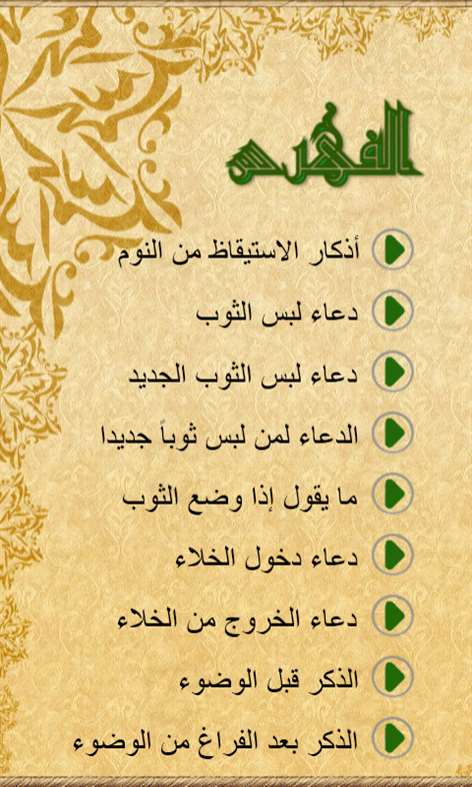 الفهرس
أذكار الاستيقاظ من النوم
دعاء لبس الثوب
دعاء لبس الثوب الجديد
الدعاء لمن لبس ثوباً جديدا
ما يقول إذا وضع الثوب
دعاء دخول الخلاء
دعاء الخروج من الخلاء
الذكر قبل الوضوء
الذكر بعد الفراغ من الوضوء